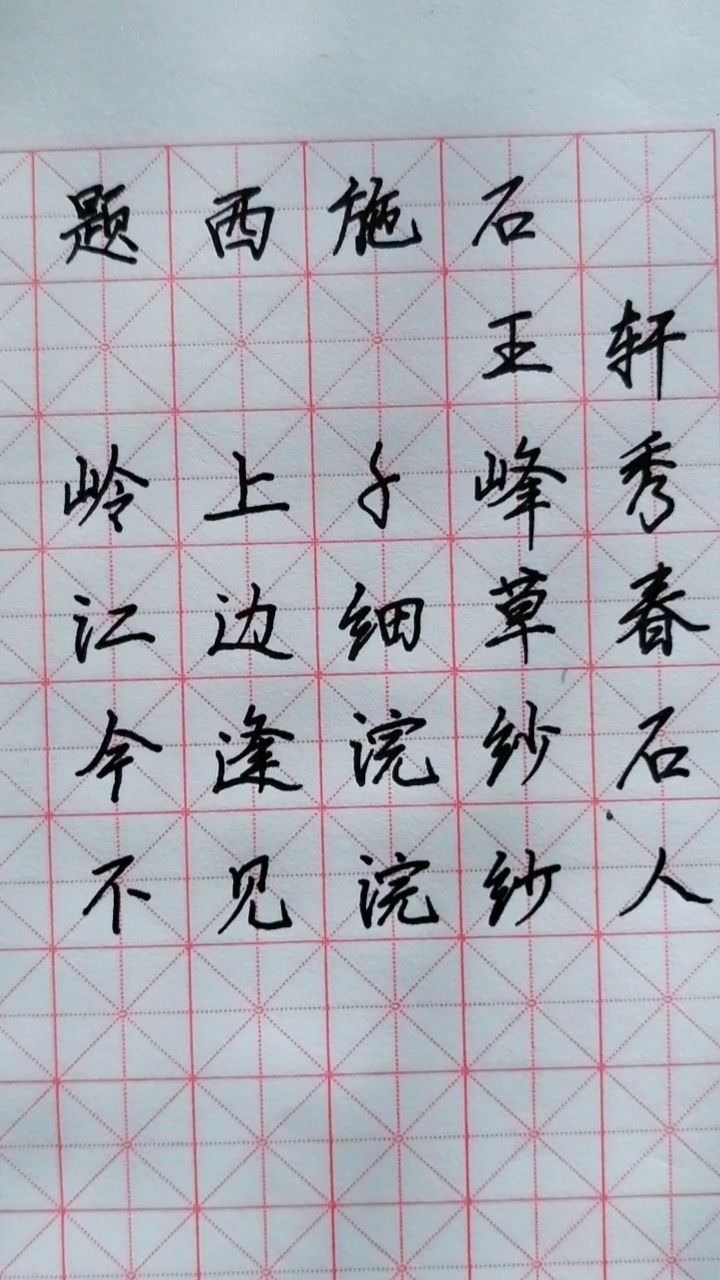 题西施石
王轩
岭上千峰秀
江边细草春
今逢浣纱石
不见浣纱人